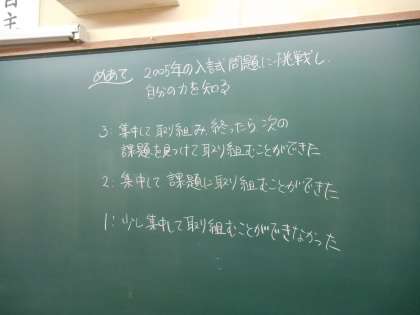 自主
めあて 2005年の入試問題に挑戦し、
自分の力を知る
3:集中して取り組み、終ったら次の
課題を見つけて取り組むことができた
2:集中して課題に取り組むことができた
1:少し集中して取り組むことができなかった